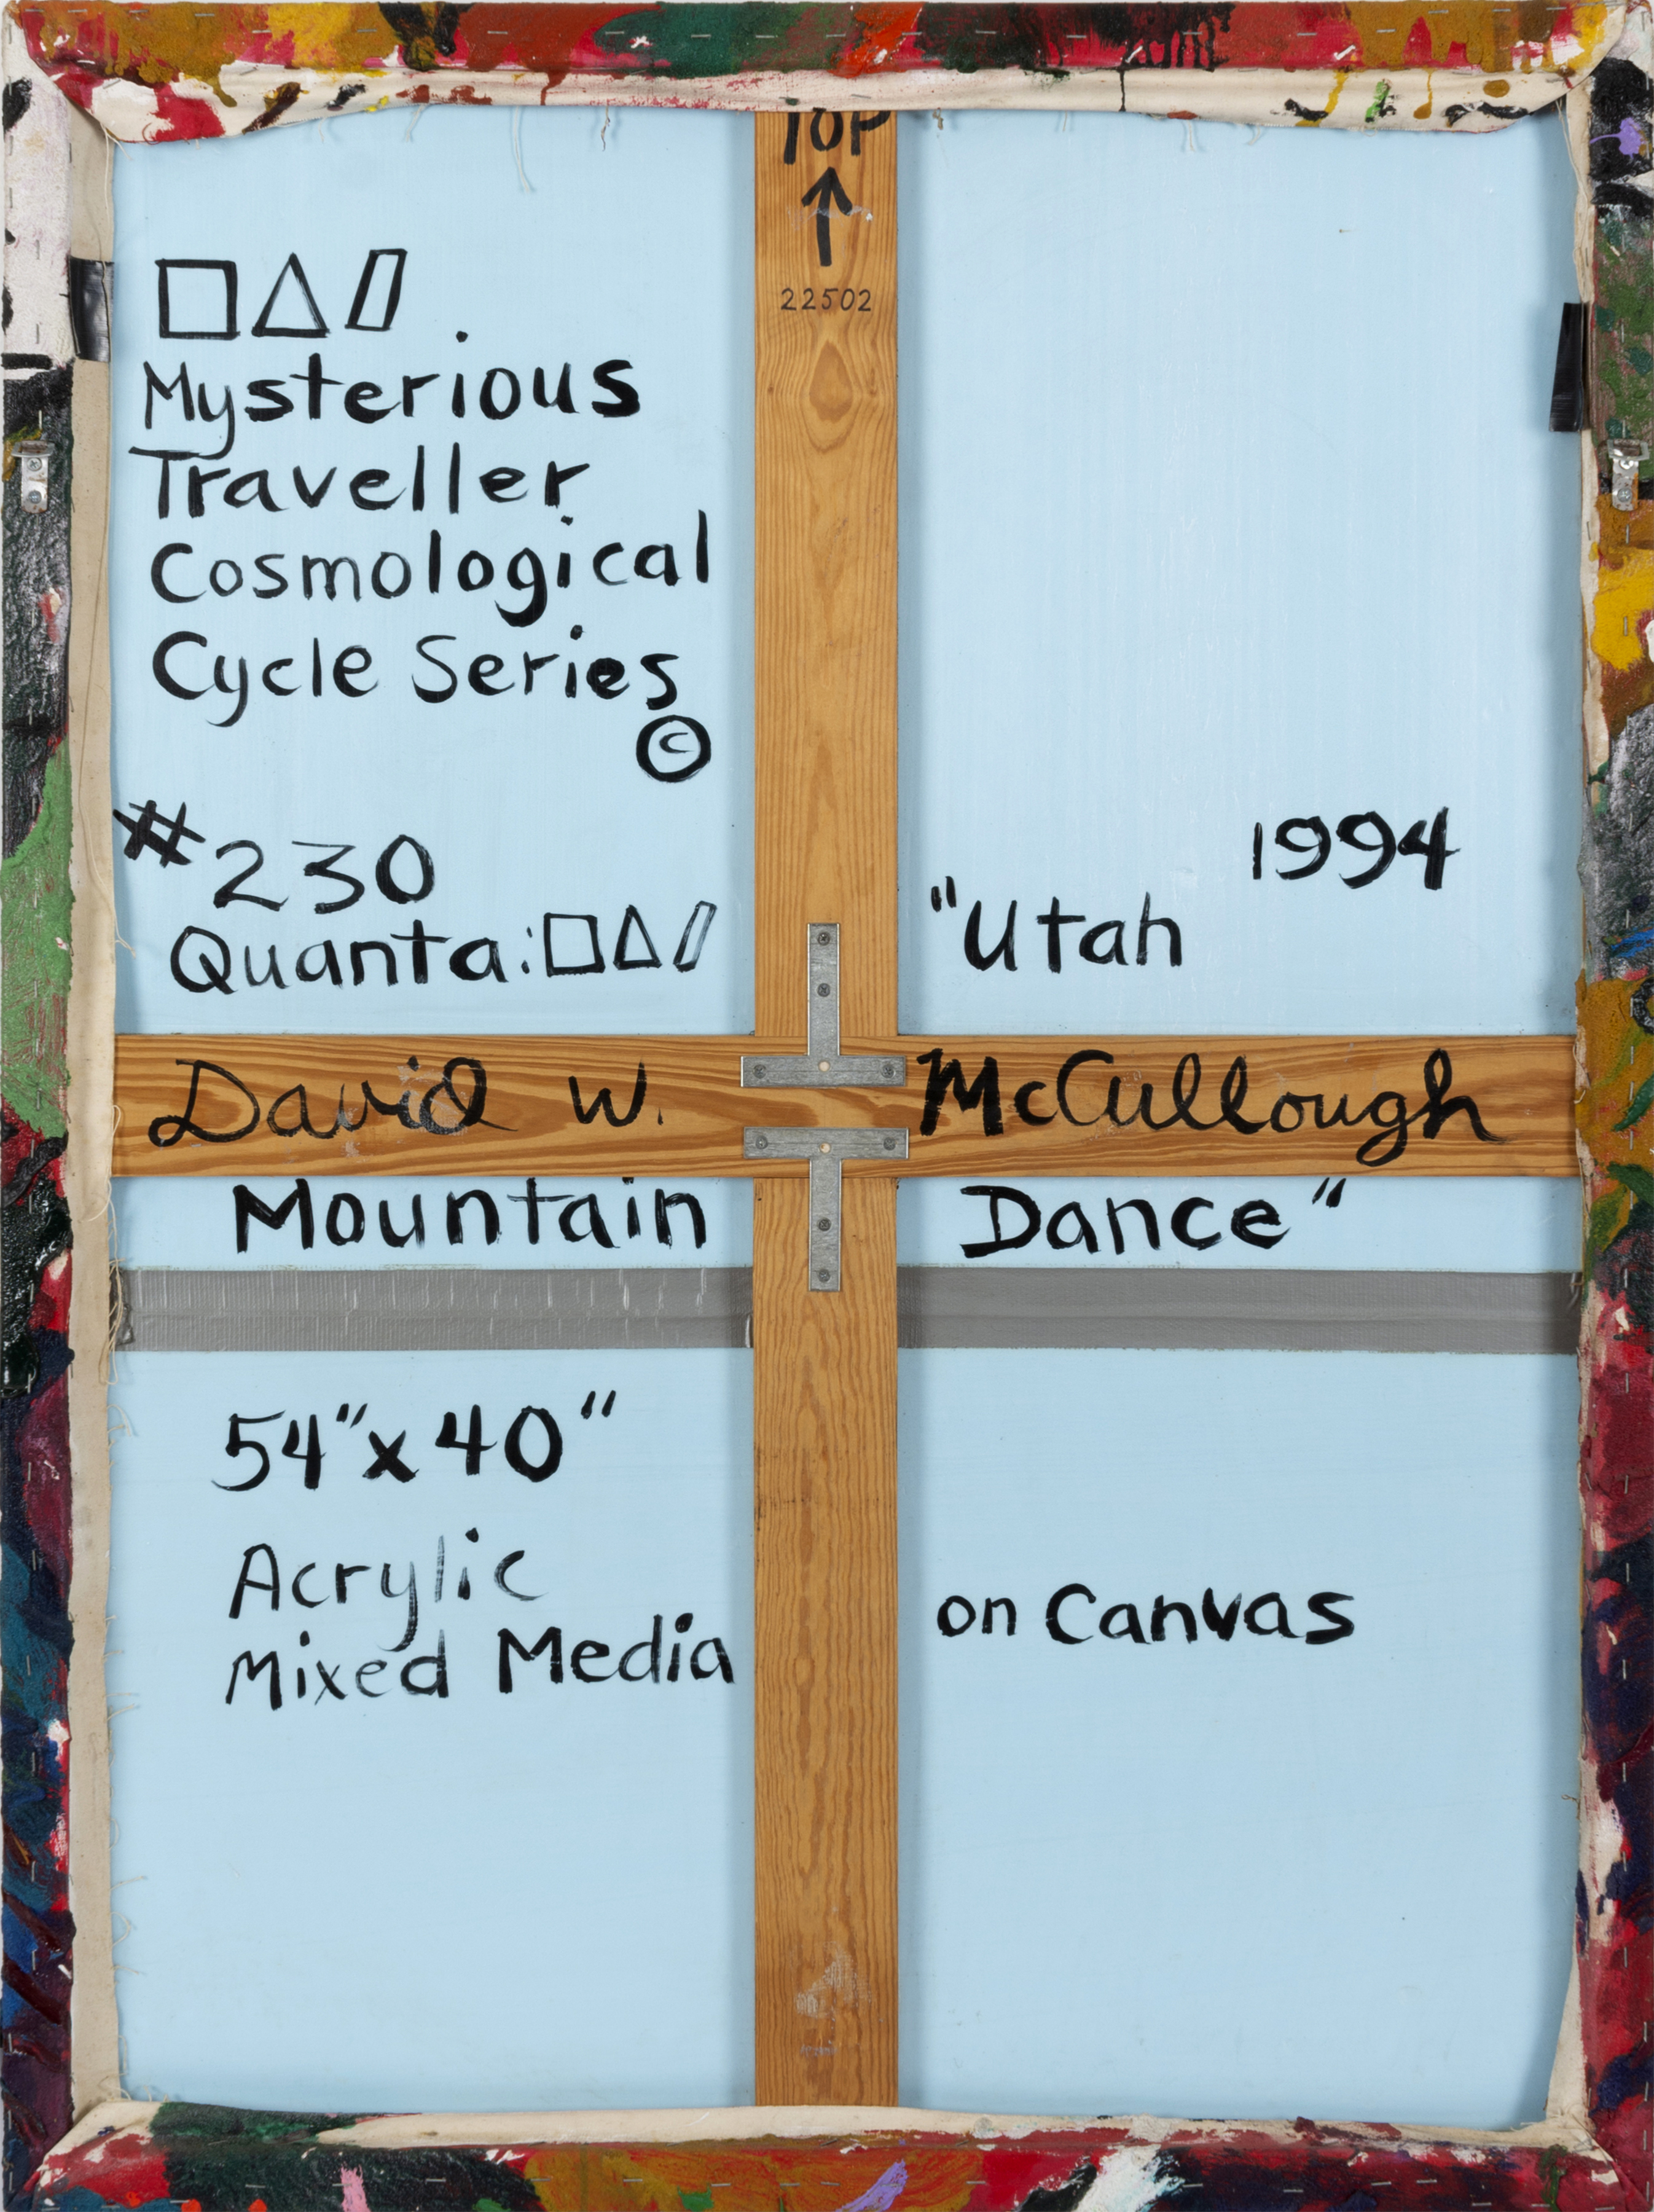 TOP
22502
□△▱
Mysterious
Traveller
Cosmological
Cycle Series
©
#230
Quanta:□△▱
1994
"Utah
David W. McCullough
Mountain Dance"
54"x40"
Acrylic
Mixed Media on Canvas